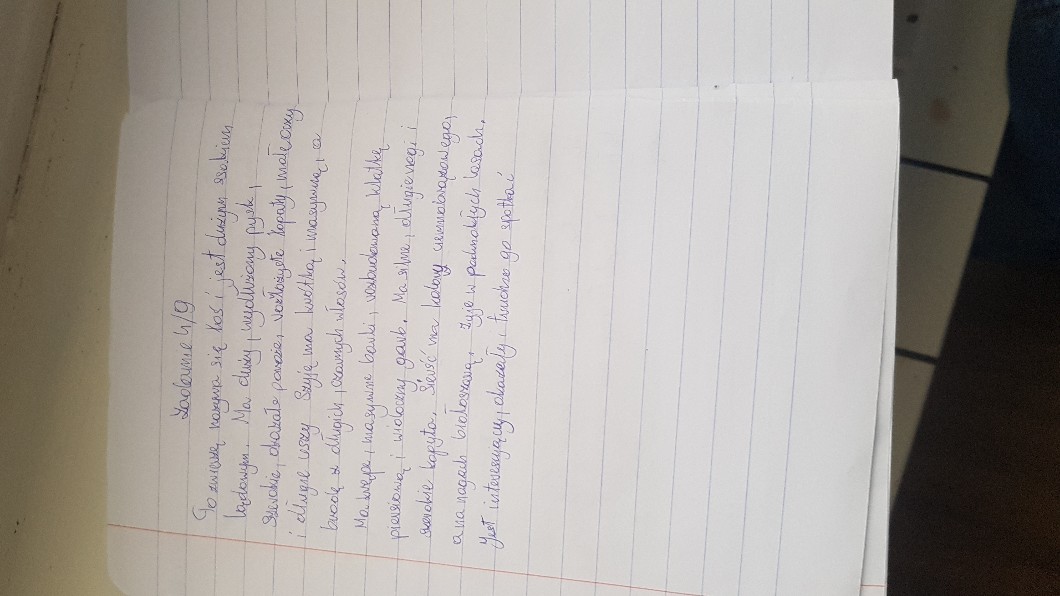 Zadanie 4/9
To zwierzę nazywa się łoś i jest dużym ssakiem
lądowym. Ma duży, wydłużony pysk,
szerokie, okazałe poroże, rozłożyste łopaty, małe oczy
i długie uszy Szyję ma krótką i masywną, a
brodę z długich, czarnych włosów.
Ma krępe, masywne barki, rozbudowaną klatkę
piersiową i widoczny garb. Ma silne, długie nogi i
szerokie kopyta. Sierść ma koloru ciemnobrązowego,
a na nogach białoszarą. Żyje w podmokłych lasach.
Jest interesujący, okazały, trudno go spotkać